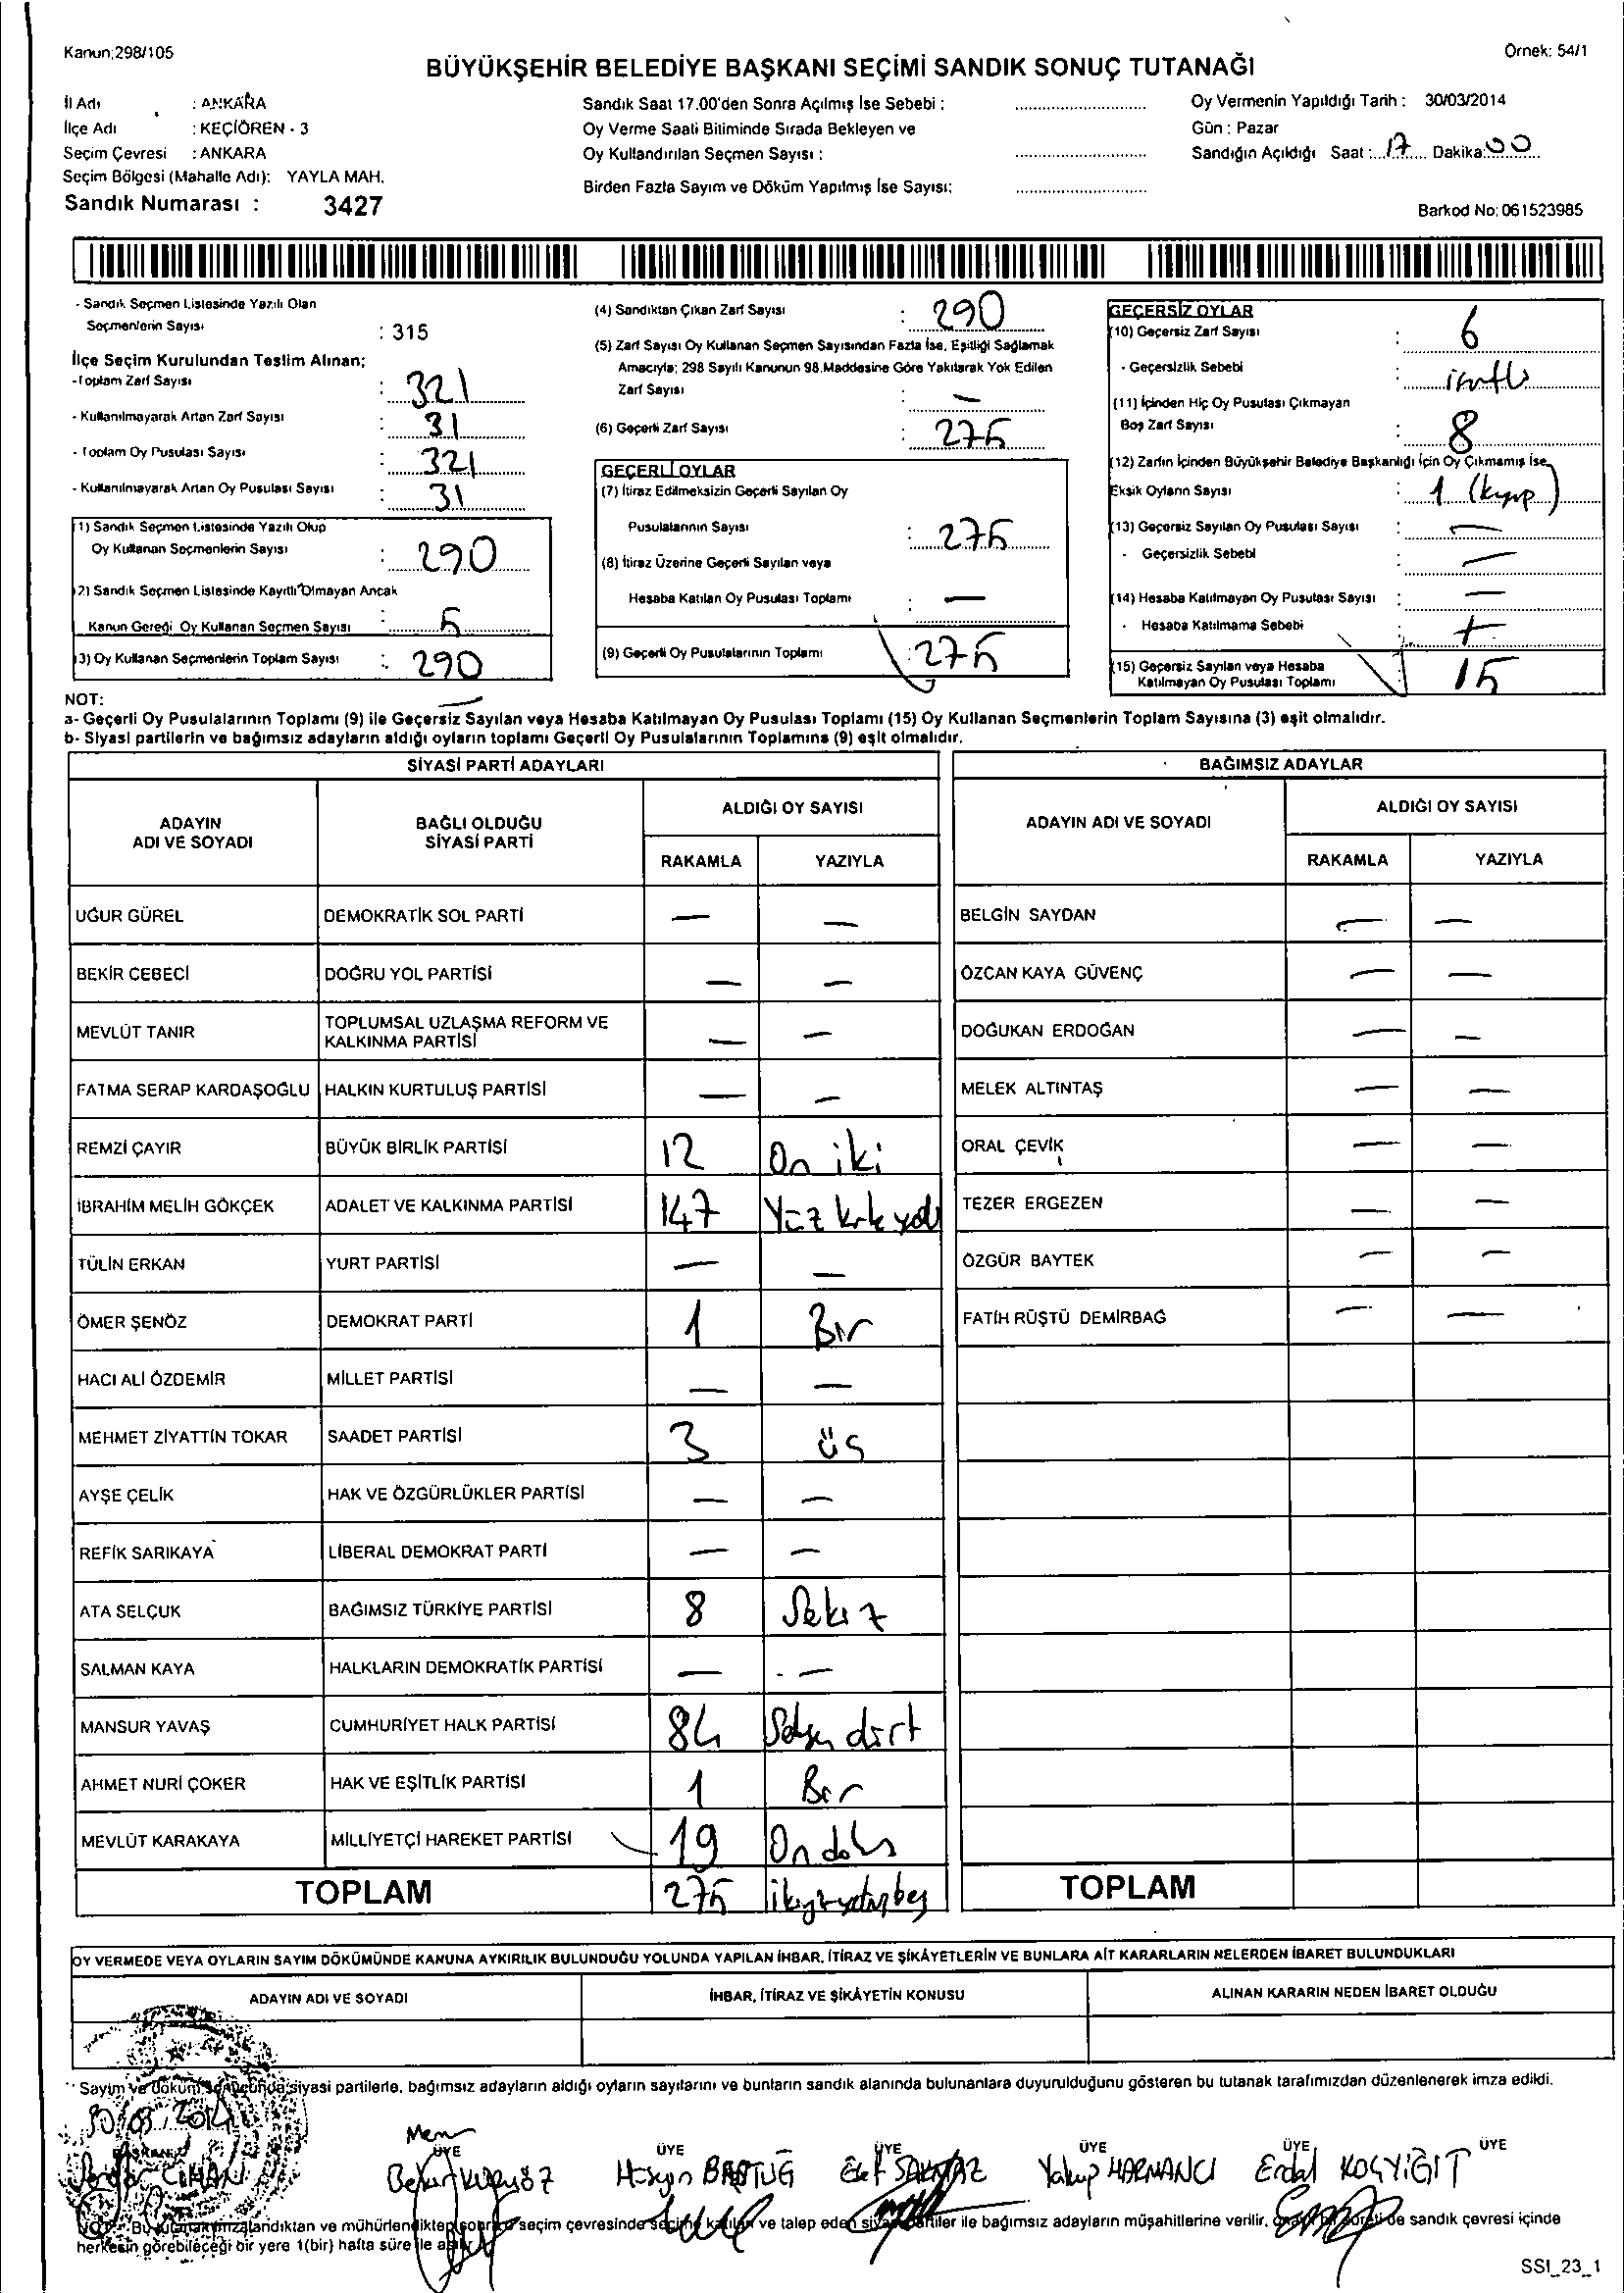 Kanun;298/105
Örnek: 54/1
BÜYÜKŞEHİR BELEDİYE BAŞKANI SEÇİMİ SANDIK SONUÇ TUTANAĞI
İl Adı : ANKARA
İlçe Adı : KEÇİÖREN - 3
Seçim Çevresi : ANKARA
Seçim Bölgesi (Mahalle Adı): YAYLA MAH.
Sandık Numarası : 3427
Sandık Saat 17.00'den Sonra Açılmış İse Sebebi :
Oy Verme Saati Bitiminde Sırada Bekleyen ve
Oy Kullandırılan Seçmen Sayısı :
Birden Fazla Sayım ve Döküm Yapılmış İse Sayısı:
Oy Vermenin Yapıldığı Tarih : 30/03/2014
Gün : Pazar
Sandığın Açıldığı Saat : 17 Dakika 00
Barkod No: 061523985
- Sandık Seçmen Listesinde Yazılı Olan
Seçmenlerin Sayısı : 315
İlçe Seçim Kurulundan Teslim Alınan;
-Toplam Zarf Sayısı : 321
- Kullanılmayarak Artan Zarf Sayısı : 31
- Toplam Oy Pusulası Sayısı : 321
- Kullanılmayarak Artan Oy Pusulası Sayısı : 31
(1) Sandık Seçmen Listesinde Yazılı Olup
Oy Kullanan Seçmenlerin Sayısı : 290
(2) Sandık Seçmen Listesinde Kayıtlı Olmayan Ancak
Kanun Gereği Oy Kullanan Seçmen Sayısı : 5
(3) Oy Kullanan Seçmenlerin Toplam Sayısı : 290
(4) Sandıktan Çıkan Zarf Sayısı : 290
(5) Zarf Sayısı Oy Kullanan Seçmen Sayısından Fazla İse, Eşitliği Sağlamak
Amacıyla; 298 Sayılı Kanunun 98.Maddesine Göre Yakılarak Yok Edilen
Zarf Sayısı : —
(6) Geçerli Zarf Sayısı : 275
GEÇERLİ OYLAR
(7) İtiraz Edilmeksizin Geçerli Sayılan Oy
Pusulalarının Sayısı : 275
(8) İtiraz Üzerine Geçerli Sayılan veya
Hesaba Katılan Oy Pusulası Toplamı : —
(9) Geçerli Oy Pusulalarının Toplamı : 275
GEÇERSİZ OYLAR
(10) Geçersiz Zarf Sayısı : 6
- Geçersizlik Sebebi :
(11) İçinden Hiç Oy Pusulası Çıkmayan
Boş Zarf Sayısı : 8
(12) Zarfın İçinden Büyükşehir Belediye Başkanlığı İçin Oy Çıkmamış İse,
Eksik Oyların Sayısı : 1 (kayıp)
(13) Geçersiz Sayılan Oy Pusulası Sayısı : —
- Geçersizlik Sebebi : —
(14) Hesaba Katılmayan Oy Pusulası Sayısı : —
- Hesaba Katılmama Sebebi :
(15) Geçersiz Sayılan veya Hesaba
Katılmayan Oy Pusulası Toplamı : 15
NOT:
a- Geçerli Oy Pusulalarının Toplamı (9) ile Geçersiz Sayılan veya Hesaba Katılmayan Oy Pusulası Toplamı (15) Oy Kullanan Seçmenlerin Toplam Sayısına (3) eşit olmalıdır.
b- Siyasi partilerin ve bağımsız adayların aldığı oyların toplamı Geçerli Oy Pusulalarının Toplamına (9) eşit olmalıdır.
SİYASİ PARTİ ADAYLARI
ADAYIN ADI VE SOYADI
BAĞLI OLDUĞU SİYASİ PARTİ
ALDIĞI OY SAYISI
RAKAMLA YAZIYLA
UĞUR GÜREL DEMOKRATİK SOL PARTİ — —
BEKİR CEBECİ DOĞRU YOL PARTİSİ — —
MEVLÜT TANIR TOPLUMSAL UZLAŞMA REFORM VE KALKINMA PARTİSİ — —
FATMA SERAP KARDAŞOĞLU HALKIN KURTULUŞ PARTİSİ — —
REMZİ ÇAYIR BÜYÜK BİRLİK PARTİSİ 12 On iki
İBRAHİM MELİH GÖKÇEK ADALET VE KALKINMA PARTİSİ 147 Yüz kırk yedi
TÜLİN ERKAN YURT PARTİSİ — —
ÖMER ŞENÖZ DEMOKRAT PARTİ 1 Bir
HACI ALİ ÖZDEMİR MİLLET PARTİSİ — —
MEHMET ZİYATTİN TOKAR SAADET PARTİSİ 3 üç
AYŞE ÇELİK HAK VE ÖZGÜRLÜKLER PARTİSİ — —
REFİK SARIKAYA LİBERAL DEMOKRAT PARTİ — —
ATA SELÇUK BAĞIMSIZ TÜRKİYE PARTİSİ 8 Sekiz
SALMAN KAYA HALKLARIN DEMOKRATİK PARTİSİ — —
MANSUR YAVAŞ CUMHURİYET HALK PARTİSİ 84 Seksen dört
AHMET NURİ ÇOKER HAK VE EŞİTLİK PARTİSİ 1 Bir
MEVLÜT KARAKAYA MİLLİYETÇİ HAREKET PARTİSİ 19 On dokuz
TOPLAM 275 ikiyüzyetmişbeş
BAĞIMSIZ ADAYLAR
ADAYIN ADI VE SOYADI
ALDIĞI OY SAYISI
RAKAMLA YAZIYLA
BELGİN SAYDAN — —
ÖZCAN KAYA GÜVENÇ — —
DOĞUKAN ERDOĞAN — —
MELEK ALTINTAŞ — —
ORAL ÇEVİK — —
TEZER ERGEZEN — —
ÖZGÜR BAYTEK — —
FATİH RÜŞTÜ DEMİRBAĞ — —
TOPLAM
OY VERMEDE VEYA OYLARIN SAYIM DÖKÜMÜNDE KANUNA AYKIRILIK BULUNDUĞU YOLUNDA YAPILAN İHBAR, İTİRAZ VE ŞİKÂYETLERİN VE BUNLARA AİT KARARLARIN NELERDEN İBARET BULUNDUKLARI
ADAYIN ADI VE SOYADI İHBAR, İTİRAZ VE ŞİKÂYETİN KONUSU ALINAN KARARIN NEDEN İBARET OLDUĞU
Sayım ve döküm sonucunda siyasi partilerle, bağımsız adayların aldığı oyların sayılarını ve bunların sandık alanında bulunanlara duyurulduğunu gösteren bu tutanak tarafımızdan düzenlenerek imza edildi.
30/03/2014
BAŞKAN ÜYE ÜYE ÜYE ÜYE ÜYE ÜYE
CİHAN Hüseyin BAŞTUĞ Elif Yakup HARMANCI Erdal KOÇYİĞİT
NOT: Bu tutanak imzalandıktan ve mühürlendikten sonra seçim çevresinde seçime katılan ve talep eden siyasi partiler ile bağımsız adayların müşahitlerine verilir, de sandık çevresi içinde
herkesin görebileceği bir yere 1(bir) hafta süre ile asılır.
SSI_23_1